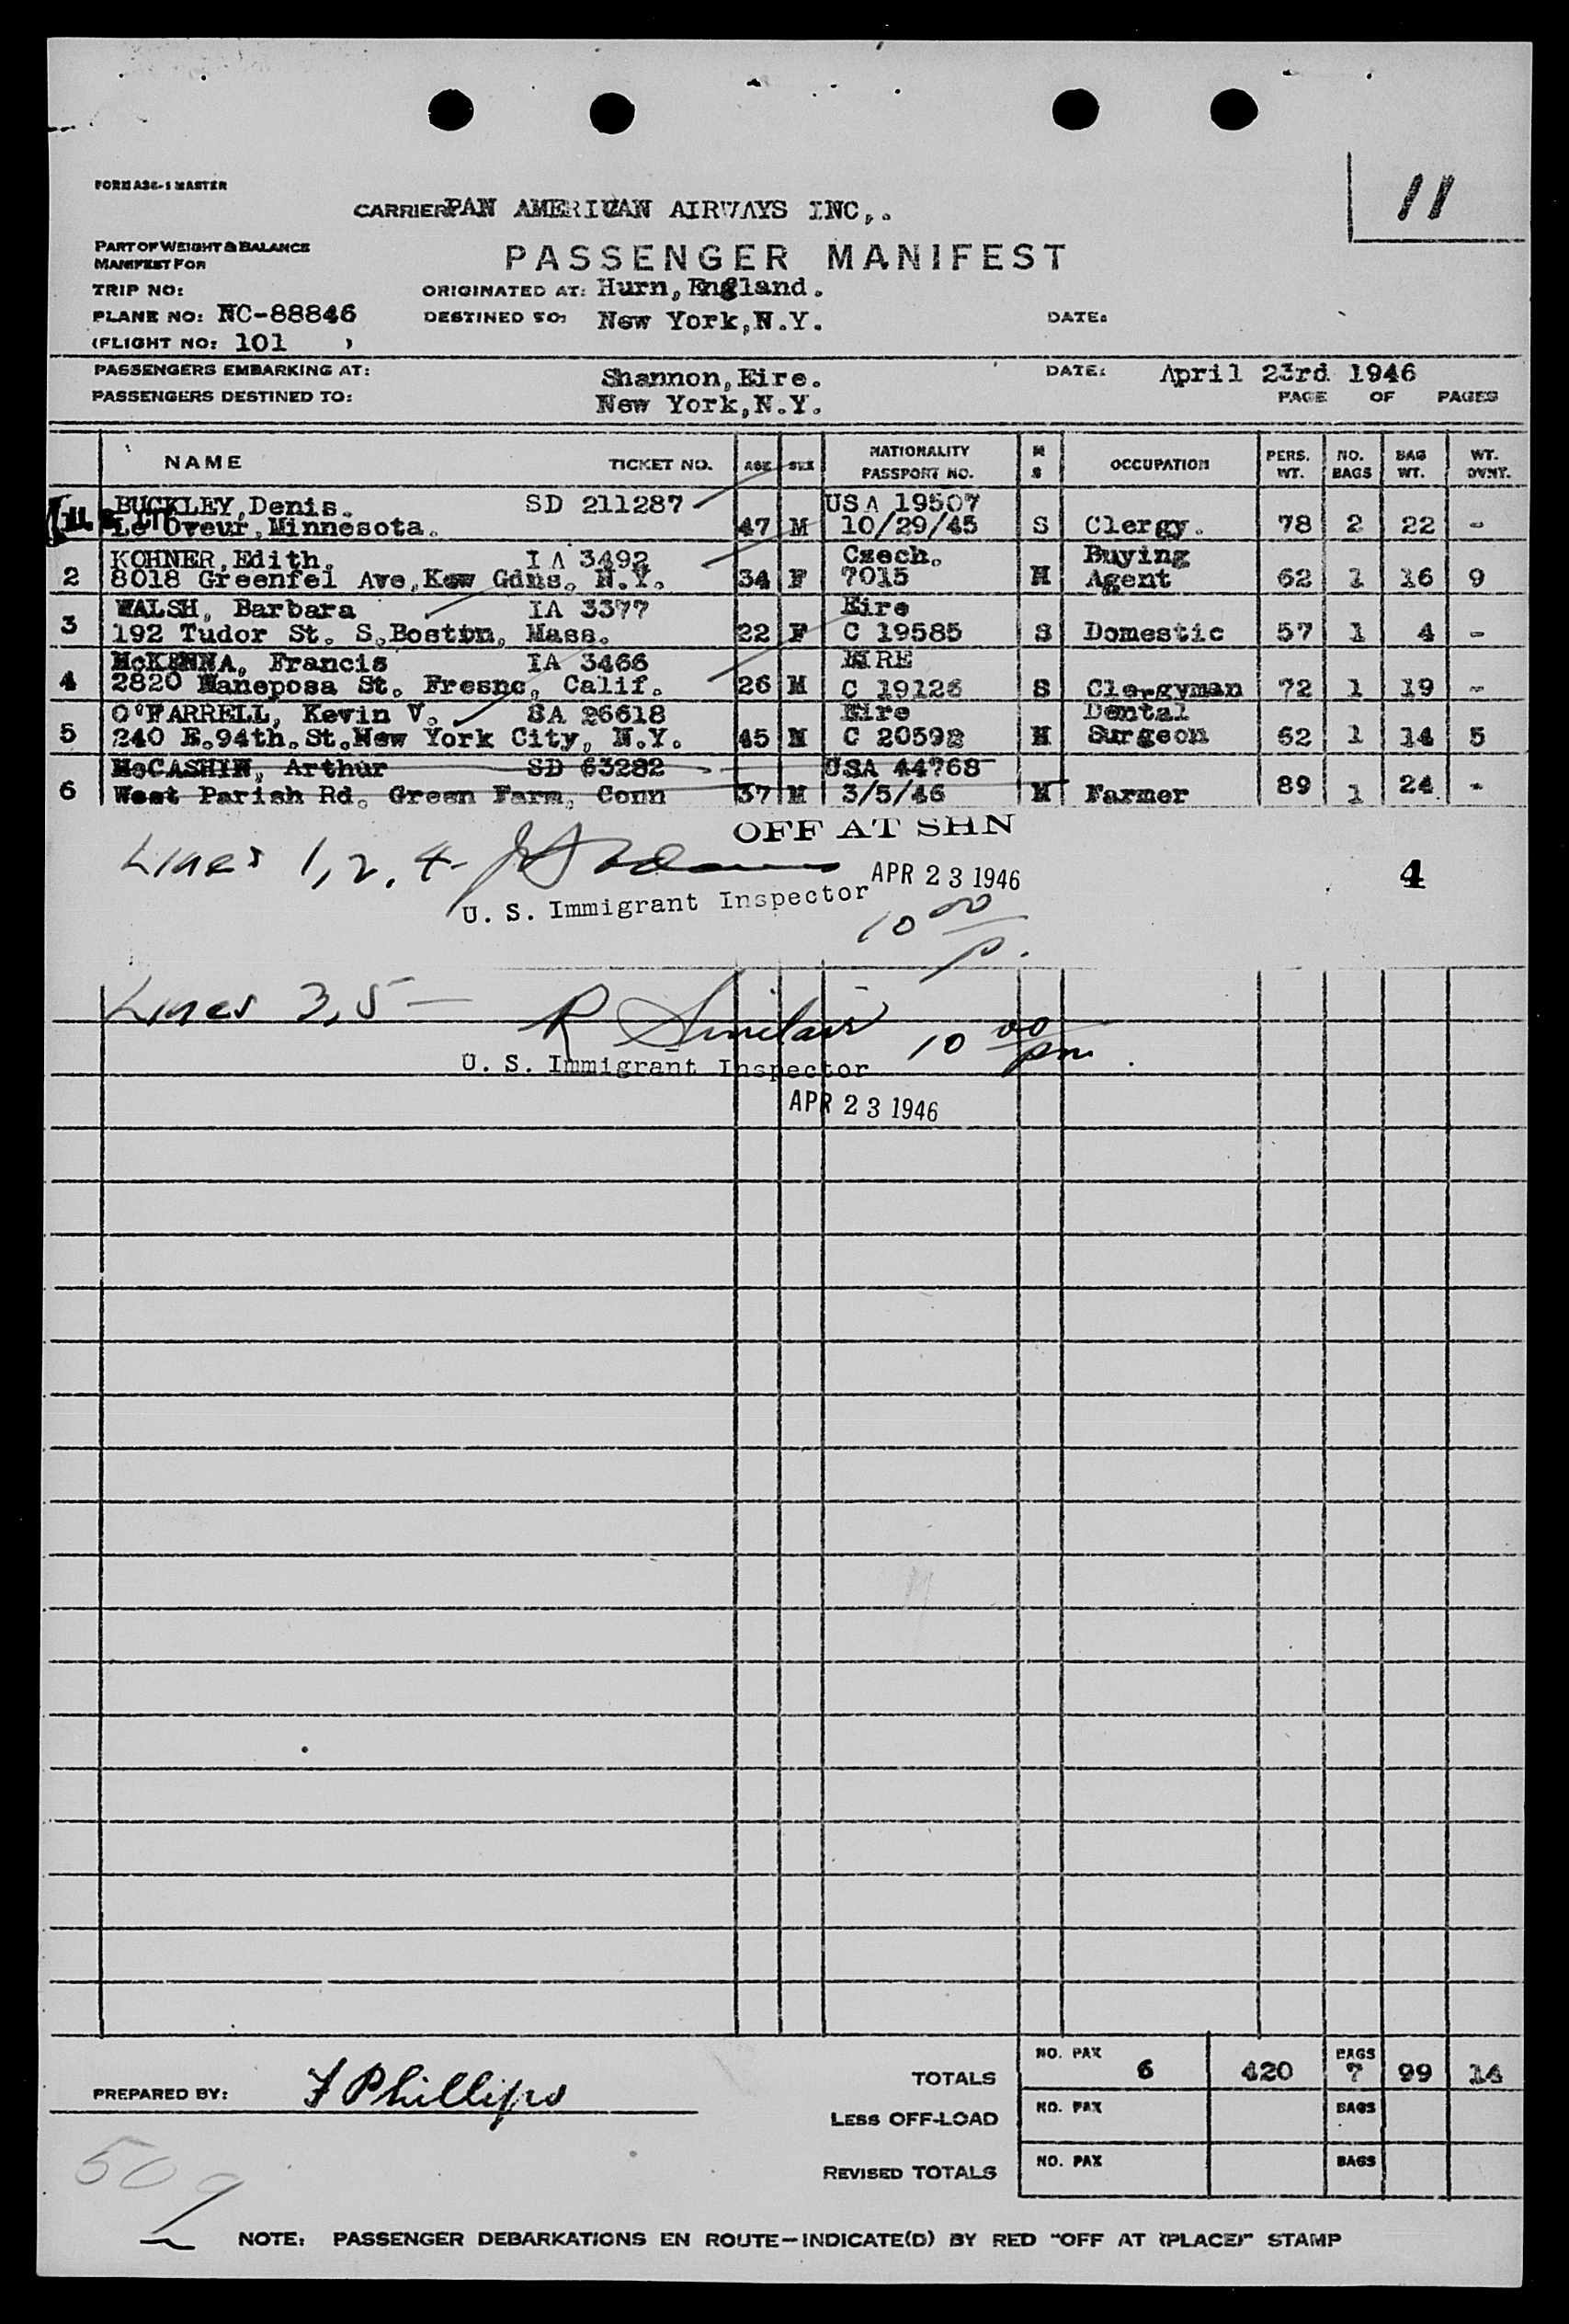 FORM A36-1 MASTER
11
CARRIER PAN AMERICAN AIRWAYS INC,.
PART OF WEIGHT & BALANCE
MANIFEST FOR
PASSENGER MANIFEST
TRIP NO:
ORIGINATED AT: Hurn, England.
PLANE NO: NC-88846
DESTINED TO: New York, N.Y.
DATE:
(FLIGHT NO: 101 )
PASSENGERS EMBARKING AT: Shannon, Eire. DATE: April 23rd 1946
PASSENGERS DESTINED TO: New York, N.Y. PAGE OF PAGES
NAME TICKET NO. AGE SEX NATIONALITY PASSPORT NO. M S OCCUPATION PERS. WT. NO. BAGS BAG WT. WT. OVWT.
BUCKLEY, Denis. SD 211287 USA 19507
Le Oveur, Minnesota. 47 M 10/29/45 S Clergy. 78 2 22 -
KOHNER, Edith. I A 3492 Czech. Buying
2 8018 Greenfel Ave, Kew Gdns. N.Y. 34 F 7015 M Agent 62 1 16 9
WALSH, Barbara IA 3377 Eire
3 192 Tudor St. S. Boston, Mass. 22 F C 19585 S Domestic 57 1 4 -
McKENNA, Francis IA 3466 EIRE
4 2820 Maneposa St. Fresno, Calif. 26 M C 19126 S Clergyman 72 1 19 -
O'FARRELL, Kevin V. SA 26618 Eire Dental
5 240 E. 94th. St. New York City, N.Y. 45 M C 20592 M Surgeon 62 1 14 5
McCASHIN, Arthur SD 63282 USA 44768
6 West Parish Rd. Green Farm, Conn 37 M 3/5/46 M Farmer 89 1 24 -
OFF AT SHN
Lines 1, 2, 4 -
APR 23 1946
4
U. S. Immigrant Inspector
10 00
p.
Lines 3, 5 -
R Sinclair 10 00 pm
U. S. Immigrant Inspector
APR 23 1946
TOTALS NO. PAX 6 420 BAGS 7 99 14
PREPARED BY: F Phillips
LESS OFF-LOAD NO. PAX BAGS
REVISED TOTALS NO. PAX BAGS
50
NOTE: PASSENGER DEBARKATIONS EN ROUTE-INDICATE(D) BY RED "OFF AT (PLACE)" STAMP